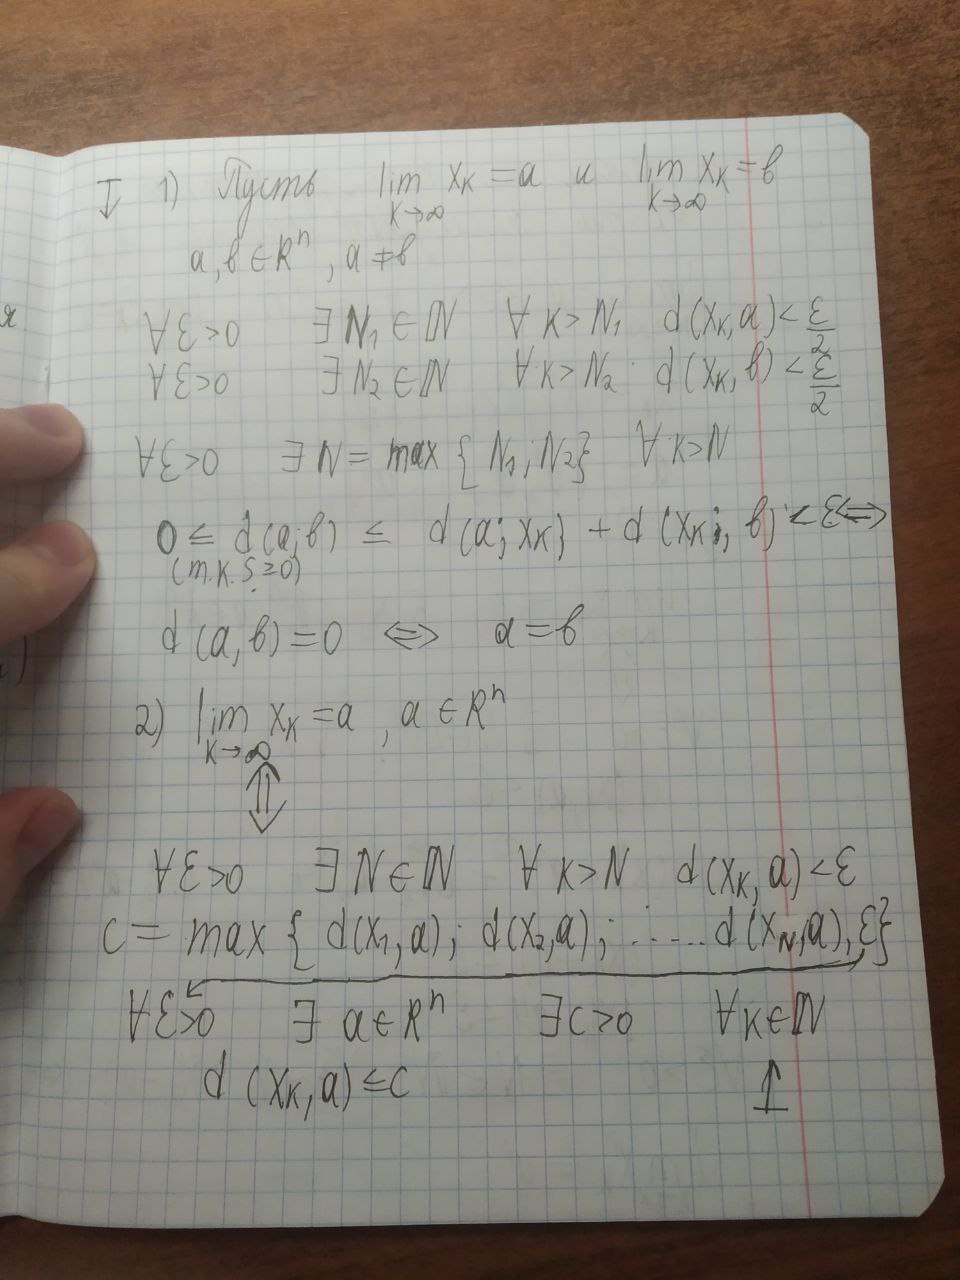 I 1) Пусть lim xₖ = a и lim xₖ = b
k→∞ k→∞
a, b ∈ Rⁿ, a ≠ b
∀ ε > 0 ∃ N₁ ∈ ℕ ∀ k > N₁ d(xₖ, a) < ε/2
∀ ε > 0 ∃ N₂ ∈ ℕ ∀ k > N₂ d(xₖ, b) < ε/2
∀ ε > 0 ∃ N = max {N₁; N₂} ∀ k > N
0 ≤ d(a; b) ≤ d(a; xₖ) + d(xₖ; b) < ε ⇔
(т.к. ρ ≥ 0)
d(a, b) = 0 ⇔ a = b
2) lim xₖ = a, a ∈ Rⁿ
k→∞
⇕
∀ ε > 0 ∃ N ∈ ℕ ∀ k > N d(xₖ, a) < ε
c = max { d(x₁, a); d(x₂, a); ...... d(x_N, a), ε}
∀ ε > 0 ∃ a ∈ Rⁿ ∃ c > 0 ∀ k ∈ ℕ
d(xₖ, a) ≤ c